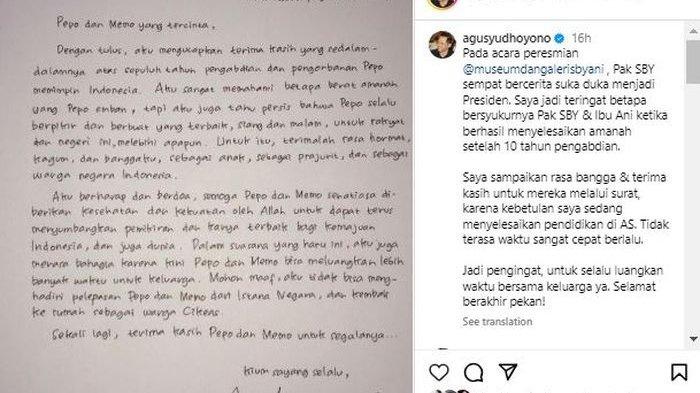 Pepo dan Memo yang tercinta,
Dengan tulus, aku mengucapkan terima kasih yang sedalam-
dalamnya atas sepuluh tahun pengabdian dan pengorbanan Pepo
memimpin Indonesia. Aku sangat memahami betapa berat amanah
yang Pepo emban, tapi aku juga tahu persis bahwa Pepo selalu
berpikir dan berbuat yang terbaik, siang dan malam, untuk rakyat
dan negeri ini, melebihi apapun. Untuk itu, terimalah rasa hormat,
kagum, dan banggaku, sebagai anak, sebagai prajurit, dan sebagai
warga negara Indonesia.
Aku berharap dan berdoa, semoga Pepo dan Memo senantiasa di-
berikan kesehatan dan kekuatan oleh Allah untuk dapat terus
menyumbangkan pemikiran dan karya terbaik bagi kemajuan
Indonesia, dan juga dunia. Dalam suasana yang haru ini, aku juga
merasa bahagia karena kini Pepo dan Memo bisa meluangkan lebih
banyak waktu untuk keluarga. Mohon maaf, aku tidak bisa meng-
hadiri pelepasan Pepo dan Memo dari Istana Negara, dan kembali
ke rumah sebagai warga Cikeas.
Sekali lagi, terima kasih Pepo dan Memo untuk segalanya...
Kium sayang selalu,
agusyudhoyono 16h
Pada acara peresmian
@museumdangalerisbyani , Pak SBY
sempat bercerita suka duka menjadi
Presiden. Saya jadi teringat betapa
bersyukurnya Pak SBY & Ibu Ani ketika
berhasil menyelesaikan amanah
setelah 10 tahun pengabdian.
Saya sampaikan rasa bangga & terima
kasih untuk mereka melalui surat,
karena kebetulan saya sedang
menyelesaikan pendidikan di AS. Tidak
terasa waktu sangat cepat berlalu.
Jadi pengingat, untuk selalu luangkan
waktu bersama keluarga ya. Selamat
berakhir pekan!
See translation